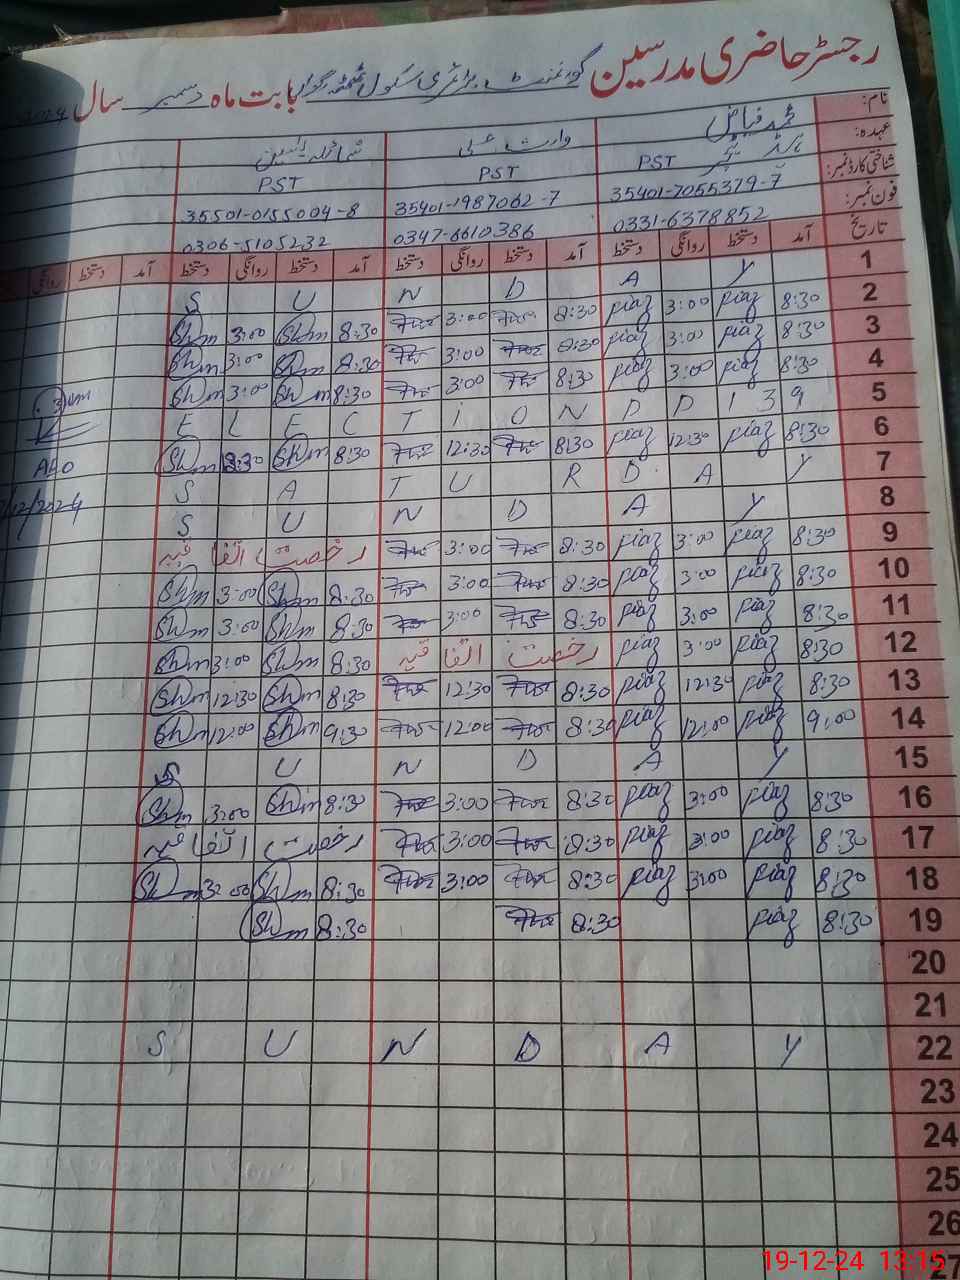 رجسٹر حاضری مدرسین گورنمنٹ پرائمری سکول بابت ماہ دسمبر سال
نام: محمد فیاض وارث علی شمائلہ
عہدہ: ہیڈ ٹیچر PST PST PST
شناختی کارڈ نمبر: 35401-7055379-7 35401-1987062-7 35501-0155004-8
فون نمبر: 0331-6378852 0347-6610386 0306-5105232
تاریخ آمد دستخط روانگی دستخط آمد دستخط روانگی دستخط آمد دستخط روانگی دستخط آمد دستخط روانگی
1 S U N D A Y
2 8:30 piaz 3:00 piaz 8:30 3:00 8:30 Shm 3:00 Shm
3 8:30 piaz 3:00 piaz 8:30 3:00 8:30 Shm 3:00 Shm
4 8:30 piaz 3:00 piaz 8:30 3:00 8:30 Shm 3:00 Shm
5 E L E C T i O N D D 1 3 9
6 8:30 piaz 12:30 piaz 8:30 12:30 8:30 Shm Shm
7 S A T U R D A Y
AEO
8 S U N D A Y
/12/2024
9 8:30 piaz 3:00 piaz 8:30 3:00 رخصت اتفاقیہ
10 8:30 piaz 3:00 piaz 8:30 3:00 8:30 Shm 3:00 Shm
11 8:30 piaz 3:00 piaz 8:30 3:00 8:30 Shm 3:00 Shm
12 8:30 piaz 3:00 piaz رخصت اتفاقیہ 8:30 Shm 3:00 Shm
13 8:30 piaz 12:30 piaz 8:30 12:30 8:30 Shm 12:30 Shm
14 9:00 piaz 12:00 piaz 8:30 12:00 9:30 Shm 12:00 Shm
15 S U N D A Y
16 8:30 piaz 3:00 piaz 8:30 3:00 8:30 Shm 3:00 Shm
17 8:30 piaz 3:00 piaz 8:30 3:00 رخصت اتفاقیہ
18 8:30 piaz 3:00 piaz 8:30 3:00 8:30 Shm 3:00 Shm
19 8:30 piaz 8:30 8:30 Shm
20
21
22 S U N D A Y
23
24
25
26
27
19-12-24 13:15